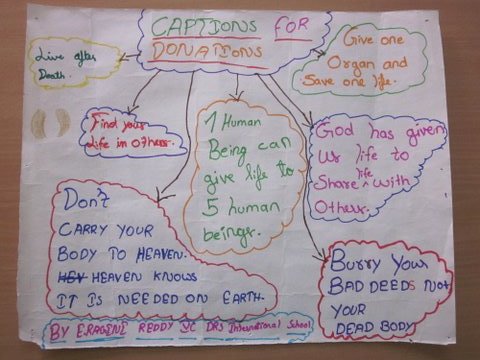 CAPTIONS FOR
DONATIONS
Live after
Death.
Give one
Organ and
Save one life.
Find your
life in others.
1 Human
Being can
give life to
5 human
beings.
God has given
Us life to
Share life with
Others.
Don't
CARRY YOUR
BODY TO HEAVEN.
HEV HEAVEN KNOWS
IT IS NEEDED ON EARTH.
Burry Your
BAD DEEDS Not
YOUR
DEAD BODY
BY ERAGINI REDDY VC DRS International School